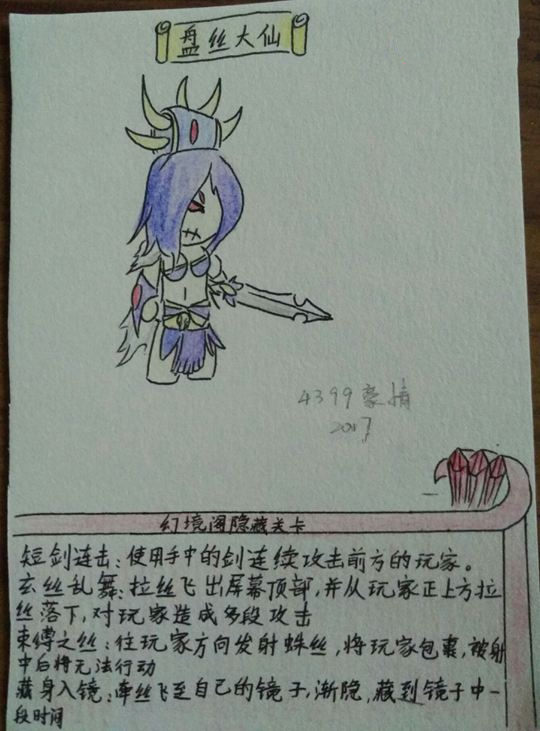 盘丝大仙
4399豪情
2017
幻境阁隐藏关卡
短剑连击:使用手中的剑连续攻击前方的玩家。
玄丝乱舞:拉丝飞出屏幕顶部,并从玩家正上方拉
丝落下,对玩家造成多段攻击
束缚之丝:往玩家方向发射蛛丝,将玩家包裹,被射
中后将无法行动
藏身入镜:牵丝飞至自己的镜子,渐隐,藏到镜子中一
段时间